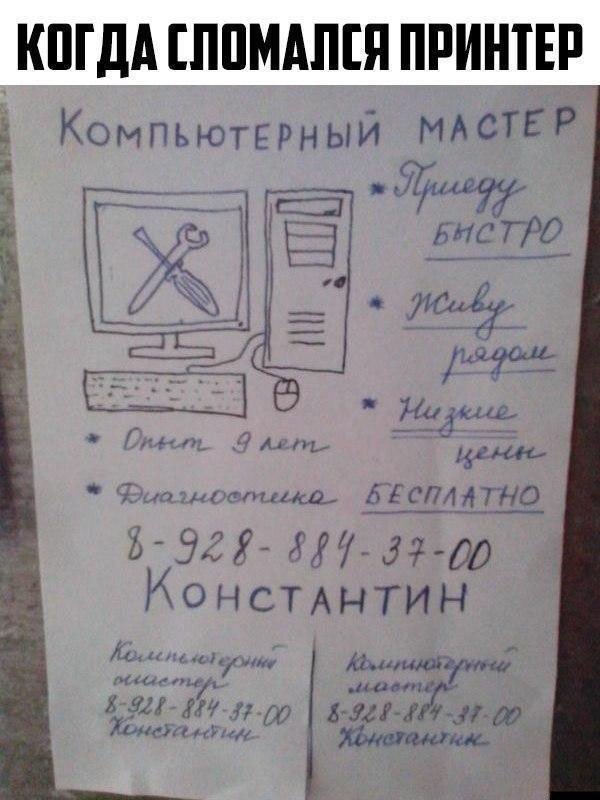 КОГДА СЛОМАЛСЯ ПРИНТЕР
КОМПЬЮТЕРНЫЙ МАСТЕР
* Приеду
БЫСТРО
* Живу
рядом
* Низкие
цены
* Опыт 9 лет
* Диагностика БЕСПЛАТНО
8-928-884-37-00
КОНСТАНТИН
Компьютерный
мастер
8-928-884-37-00
Константин
Компьютерный
мастер
8-928-884-37-00
Константин